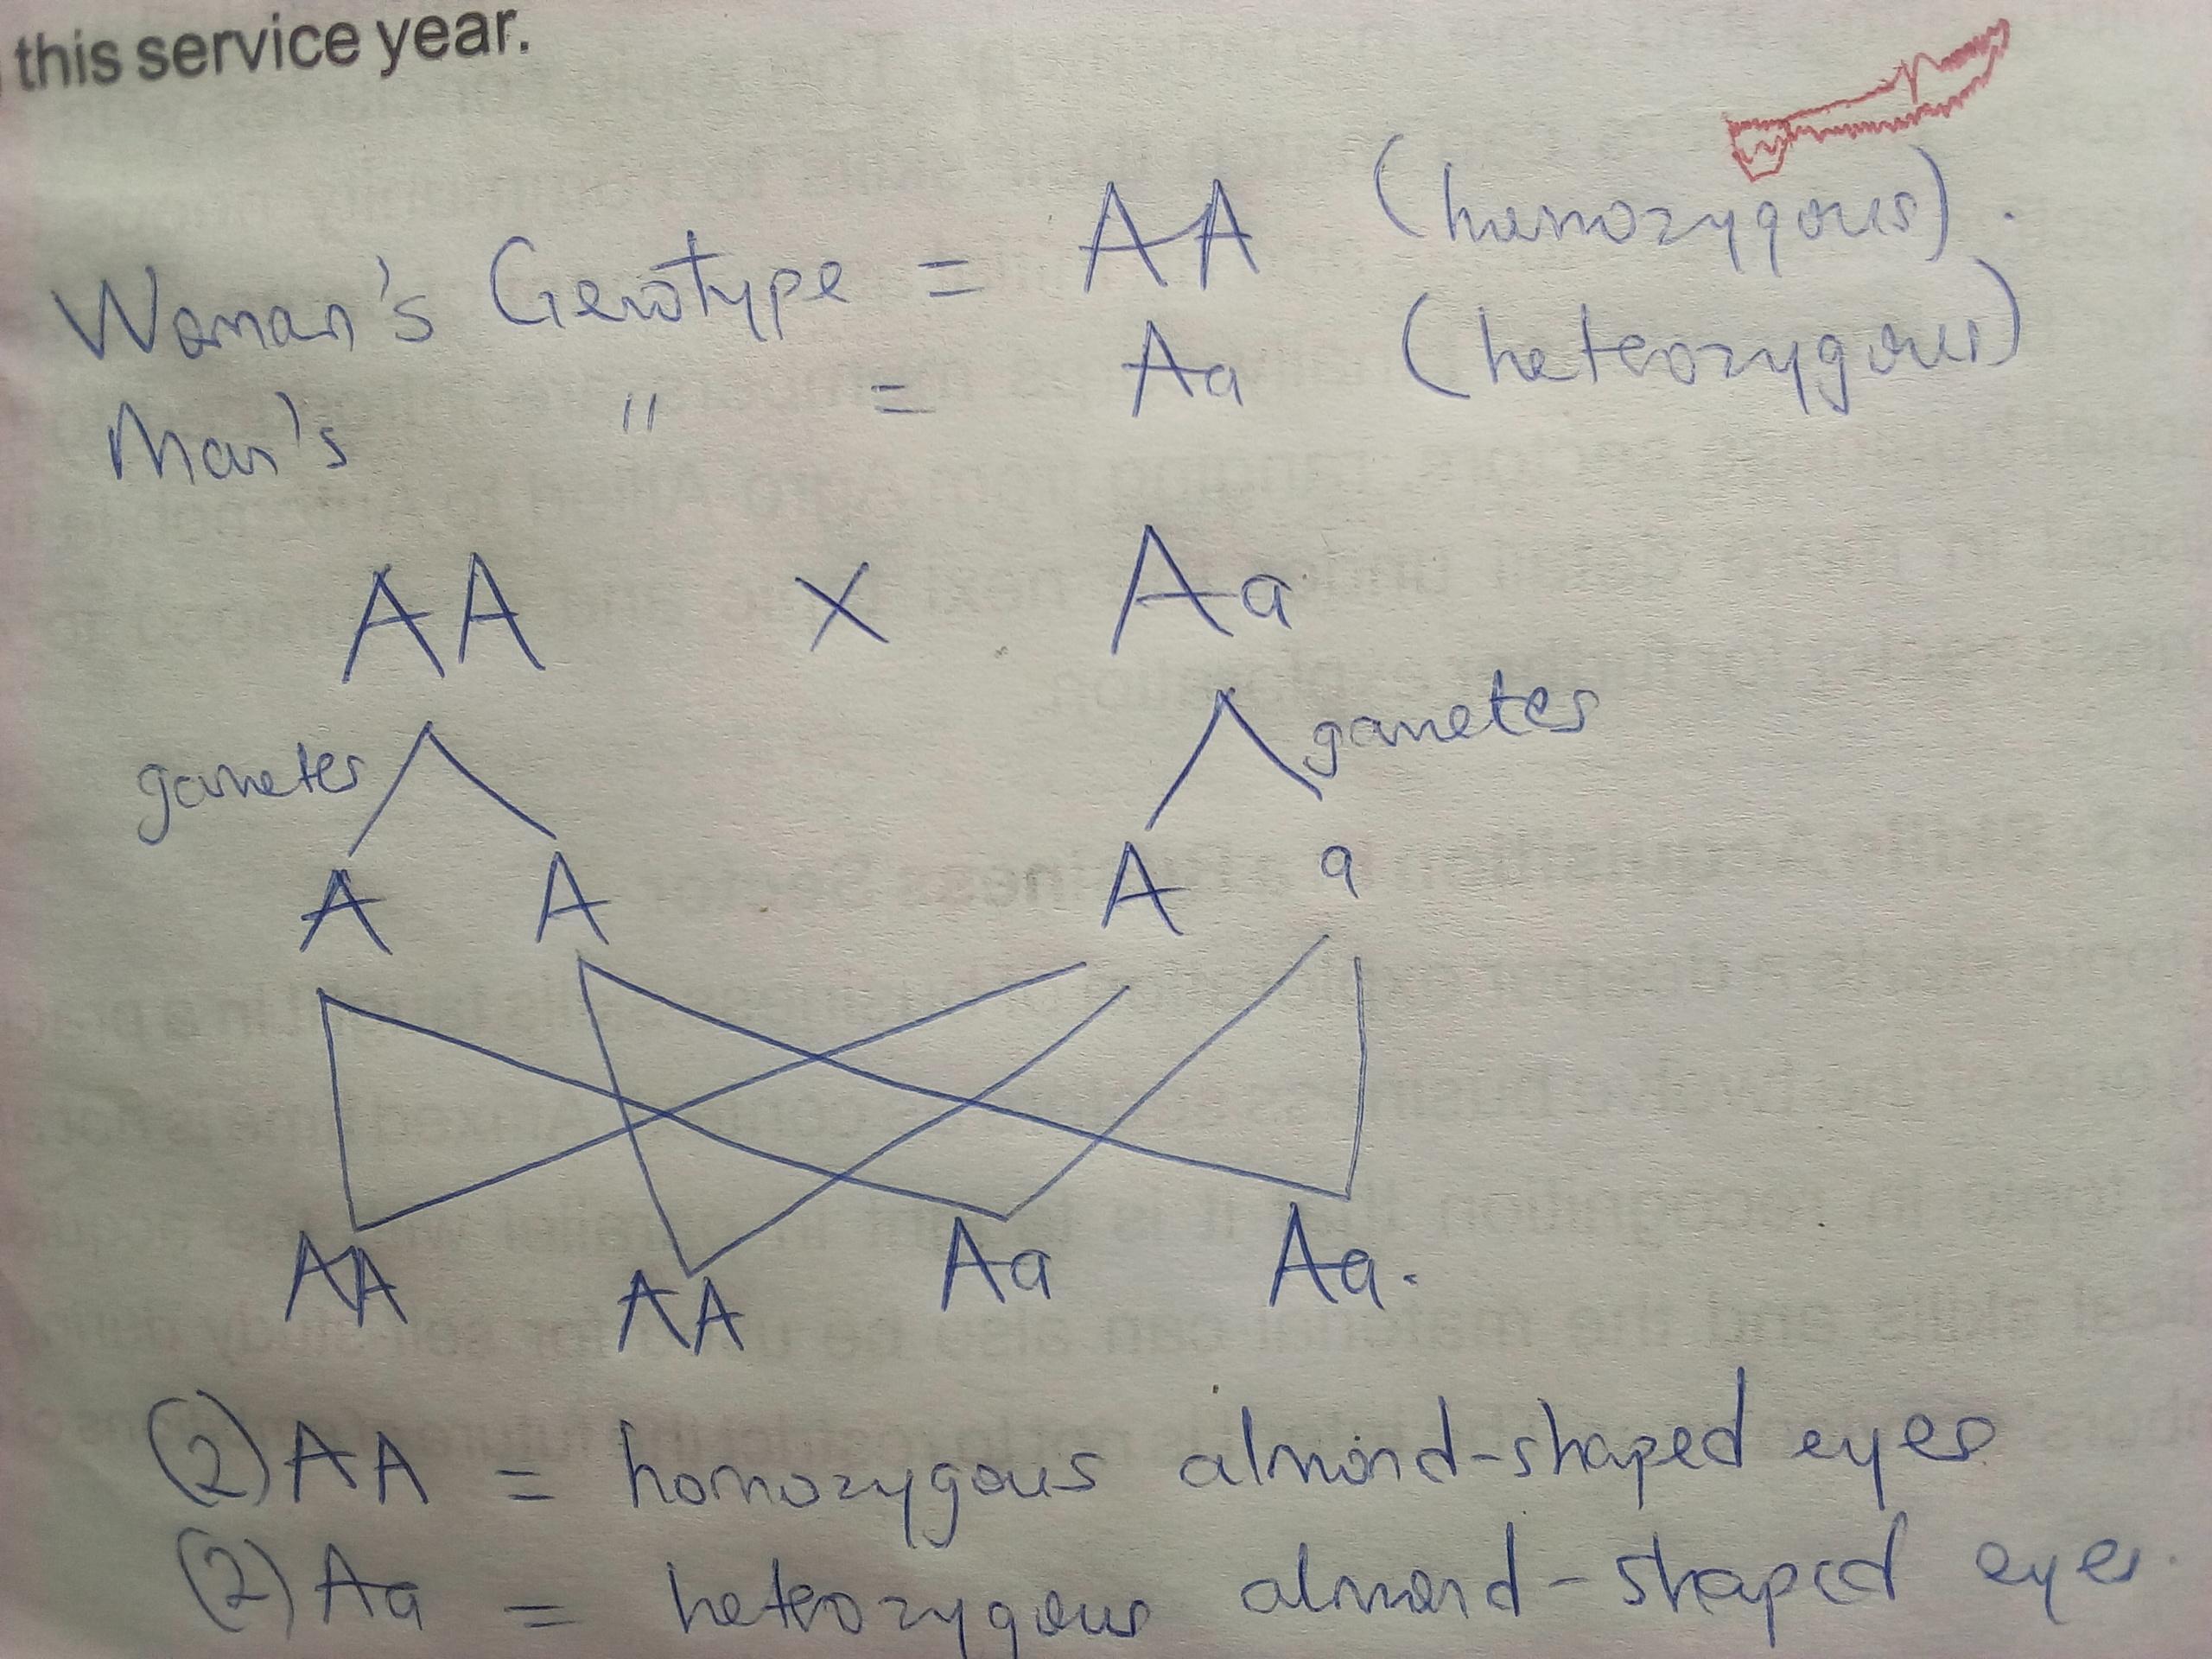 this service year.
Woman's Genotype = AA (homozygous).
Man's " = Aa (heterozygous)
AA X Aa
gametes gametes
A A A a
AA AA Aa Aa.
(2) AA = homozygous almond-shaped eyes
(2) Aa = heterozygous almond-shaped eyes